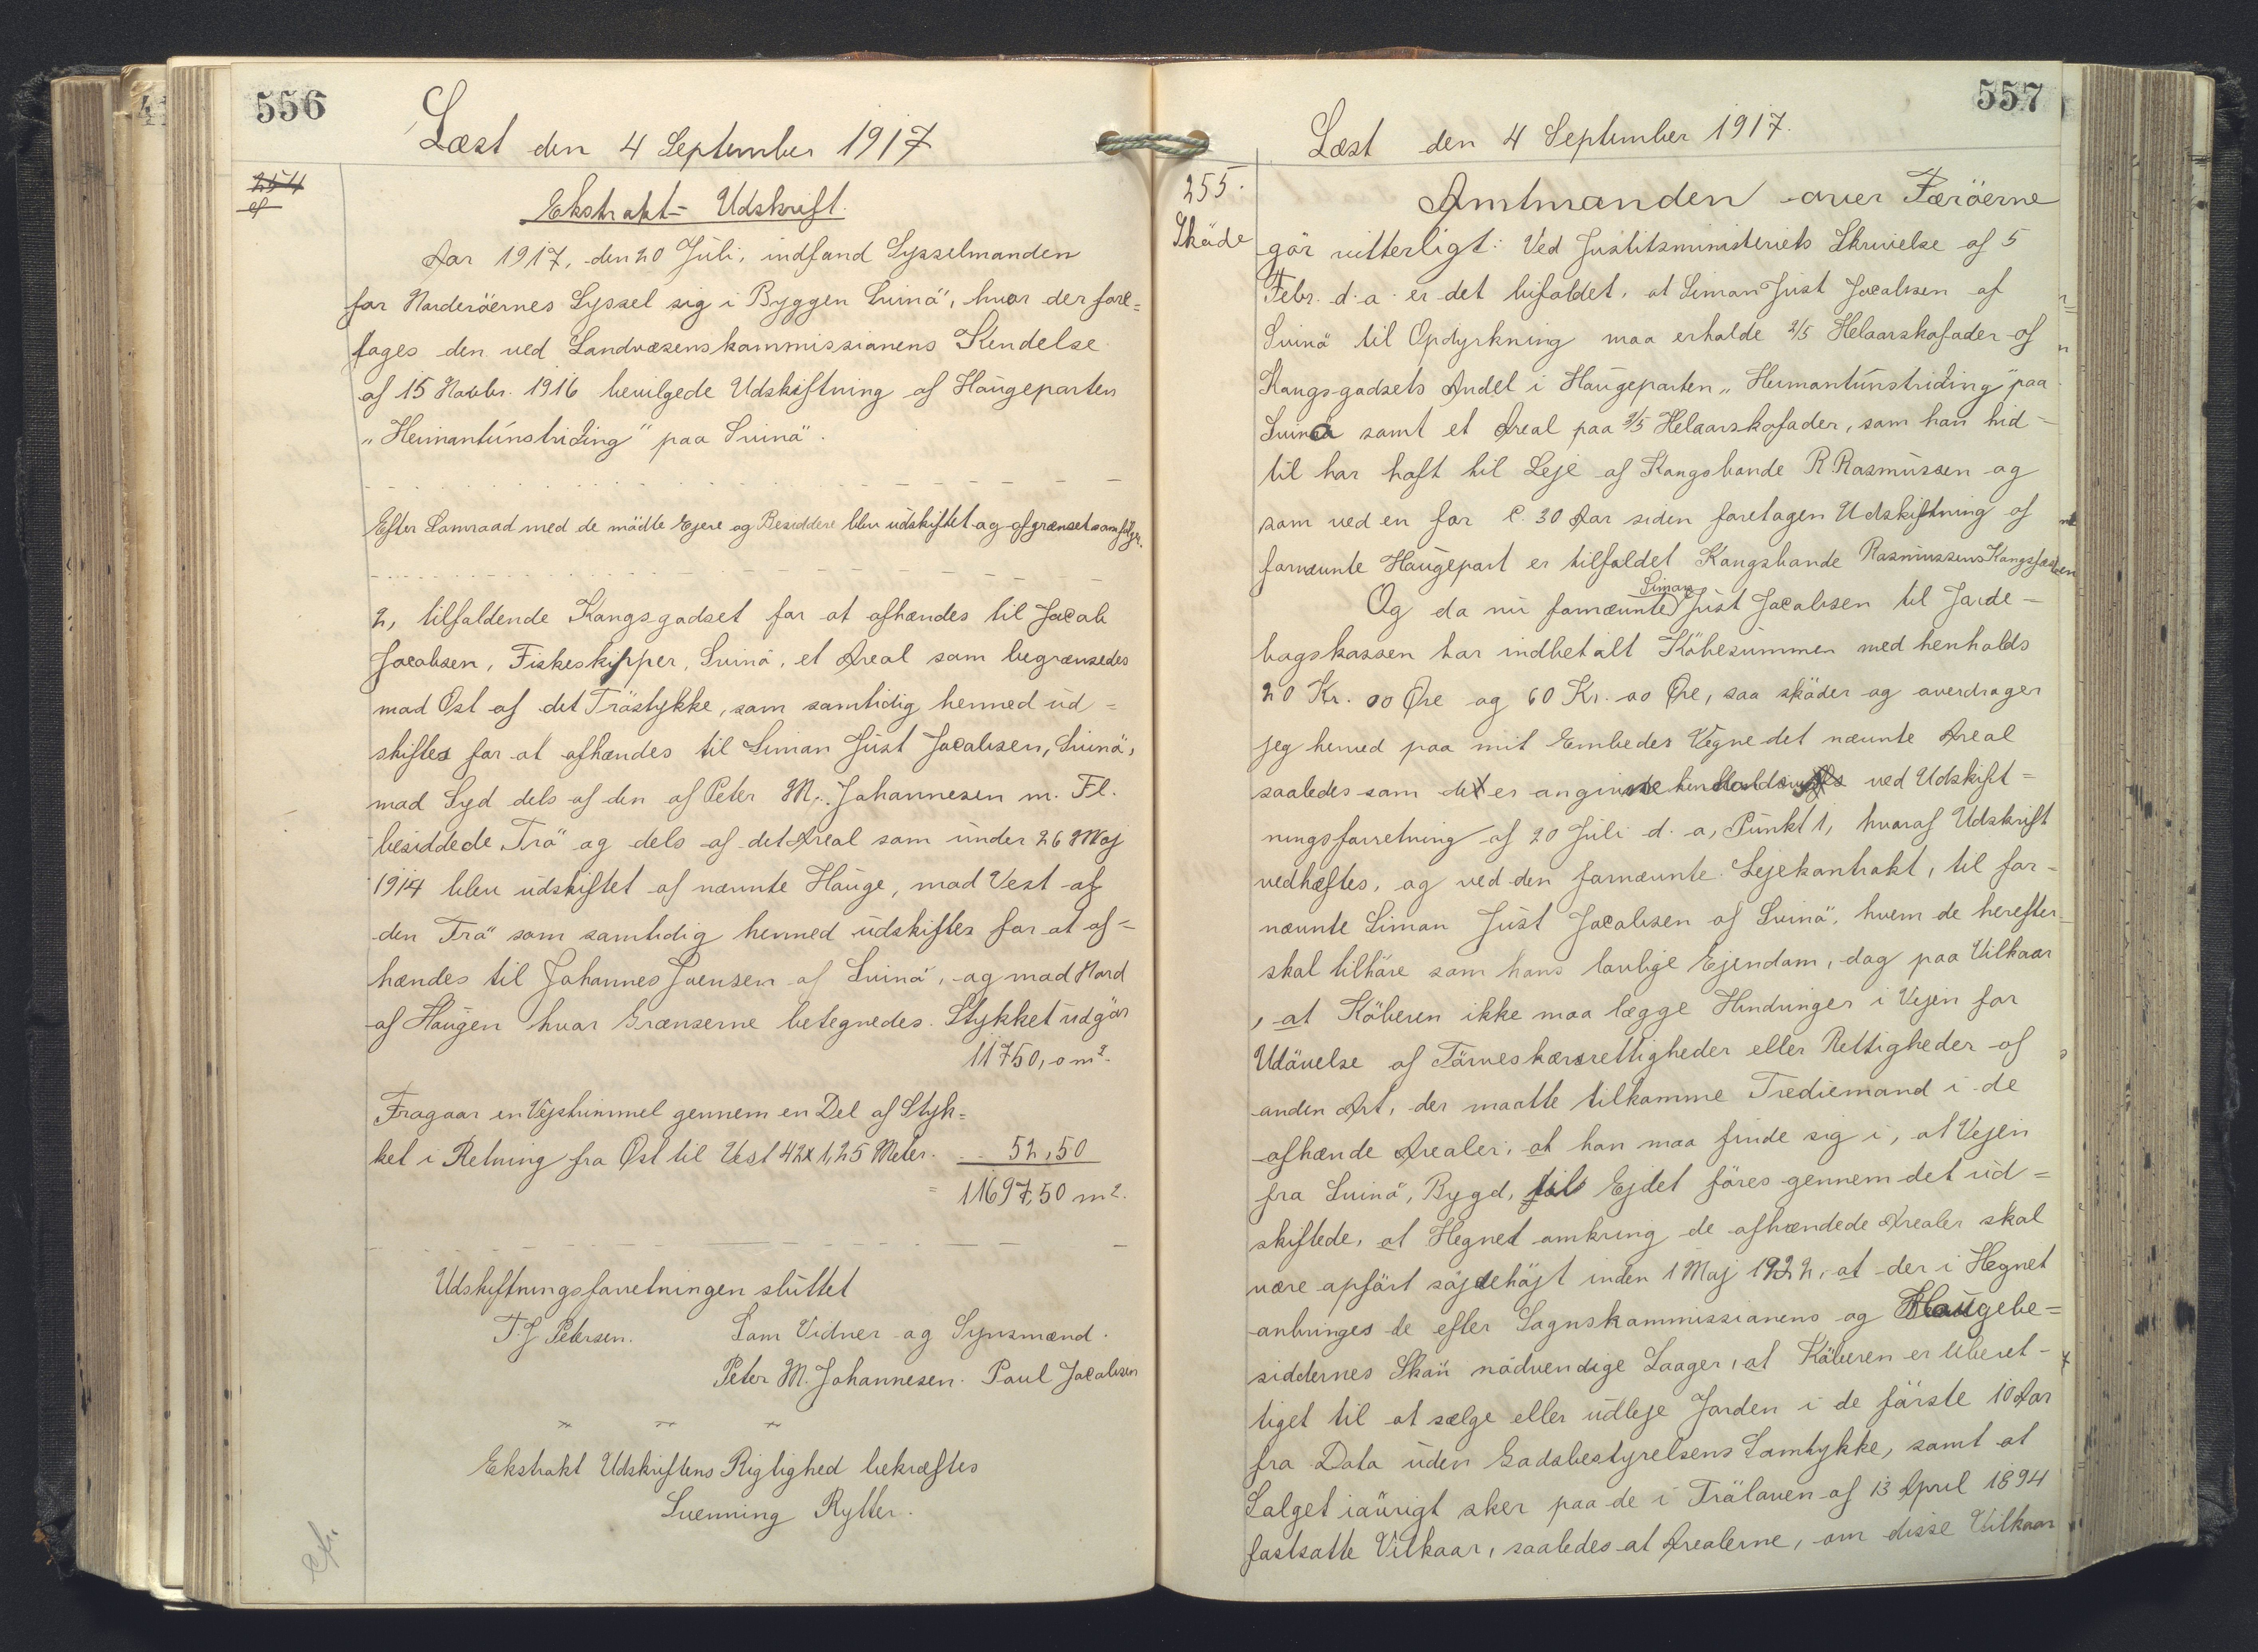 556
Læst den 4 September 1917
254
cf
Ekstrakt- Udskrift.
Aar 1917, den 20 Juli, indfand Sysselmanden
for Norderöernes Syssel sig i Byggen Svinö, hvor der fore=
tages den ved Landvæsenskommissionens Kendelse
af 15 Novbr. 1916 bevilgede Udskiftning af Haugeparten
"Heimantúnstriding" paa Svinö.
Efter Samraad med de mödte Ejere og Besiddere blev udskiftet og afgrænset som følger.
2, tilfaldende Kongsgodset for at afhændes til Jacob
Jacobsen, Fiskeskipper, Svinö, et Areal som begrænsedes
mod Øst af det Tröstykke, som samtidig hermed ud=
skiftes for at afhændes til Simon Just Jacobsen, Svinö,
mod Syd dels af den af Peter M. Johannesen m. Fl.
besiddede Trö og dels af det Areal som under 26 Maj
1914 blev udskiftet af nævnte Hauge, mod Vest af
den Trö som samtidig hermed udskiftes for at af=
hændes til Johannes Joensen af Svinö, og mod Nord
af Haugen hvor Grænserne betegnedes. Stykket udgör
11750,0 m2.
Fragaar en Vejstrimmel gennem en Del af Styk=
ket i Retning fra Øst til Vest 42x1,25 Meter. .. 52,50
= 11697,50 m2.
Udskiftningsforretningen sluttet
T J Petersen. Som Vidner og Synsmænd.
Peter M. Johannesen. Poul Jacobsen
Ekstrakt Udskriftens Rigtighed bekræftes
Svenning Rytter.
Cfr.
557
Læst den 4 September 1917.
255.
Sköde
Amtmanden over Færöerne
gör vitterligt: Ved Justitsministeriets Skrivelse af 5
Febr. d. a. er det bifaldet, at Simon Just Jacobsen af
Svinö til Opdyrkning maa erholde 2/5 Helaarskofoder af
Kongsgodsets Andel i Haugeparten "Heimantúnstriding" paa
Svinö samt et Areal paa 3/5 Helaarskofoder, som han hid=
til har haft til Leje af Kongsbonde R Rasmussen og
som ved en for c. 30 Aar siden foretagen Udskiftning af
fornævnte Haugepart er tilfaldet Kongsbonde Rasmussens Kongsfæsten
Og da nu fornævnte Simon Just Jacobsen til Jorde=
bogskassen har indbetalt Köbesummen med henholds
20 Kr. 00 Øre og 60 Kr. 00 Øre, saa sköder og overdrager
jeg herved paa mit Embedes Vegne det nævnte Areal
saaledes som det er angivne henholdsvis ved Udskift=
ningsforretning af 20 Juli d. a, Punkt 1, hvoraf Udskrift
vedhæftes, og ved den fornævnte Lejekontrakt, til for=
nævnte Simon Just Jacobsen af Svinö, hvem de herefter
skal tilhöre som hans lovlige Ejendom, dog paa Vilkaar
, at Köberen ikke maa lægge Hindringer i Vejen for
Udövelse af Törveskærsrettigheder eller Rettigheder af
anden Art, der maatte tilkomme Trediemand i de
afhænde Arealer; at han maa finde sig i, at Vejen
fra Svinö, Bygd, til Ejdet föres gennem det ud=
skiftede, at Hegnet omkring de afhændede Arealer skal
være opfört söjdehöjt inden 1 Maj 1922, at der i Hegnet
anbringes de efter Sognskommissionens og Haugebe=
siddernes Skön nödvendige Laager, at Köberen er uberet-
tiget til at sælge eller udleje Jorden i de förste 10 Aar
fra Dato uden Godsbestyrelsens Samtykke, samt at
Salget iövrigt sker paa de i Trölaven af 13 April 1894
fastsatte Vilkaar, saaledes at Arealerne, om disse Vilkaar